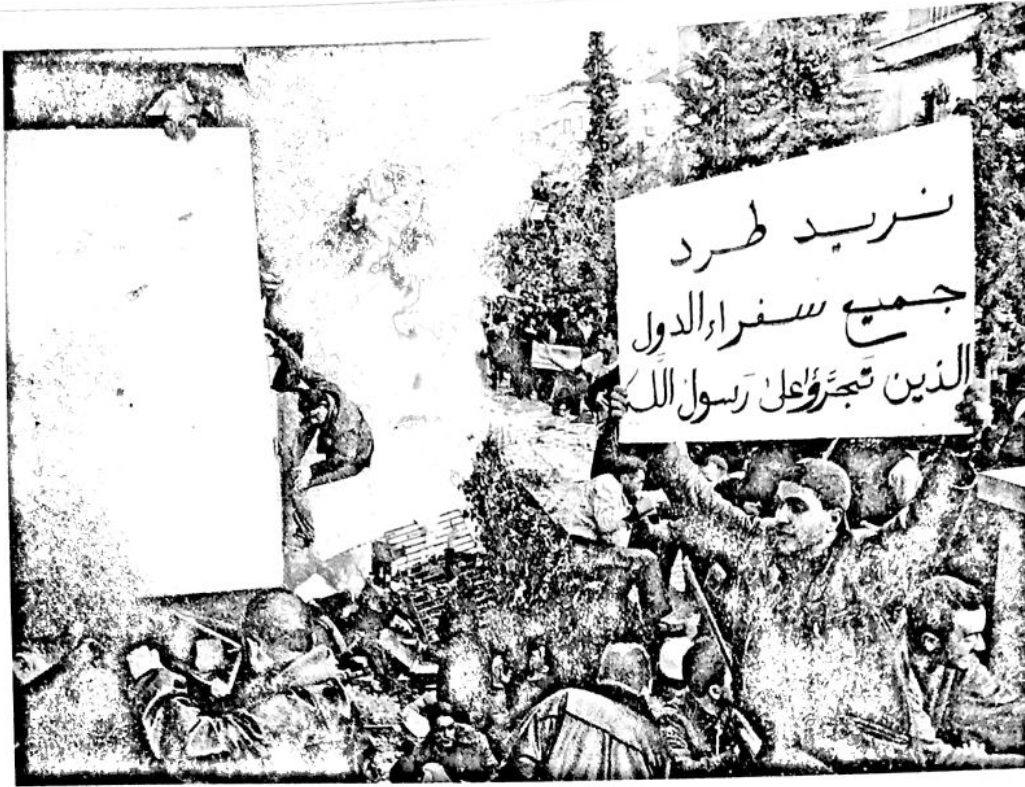 نريد طرد
جميع سفراء الدول
الذين تَجرَّؤا على رَسول الله